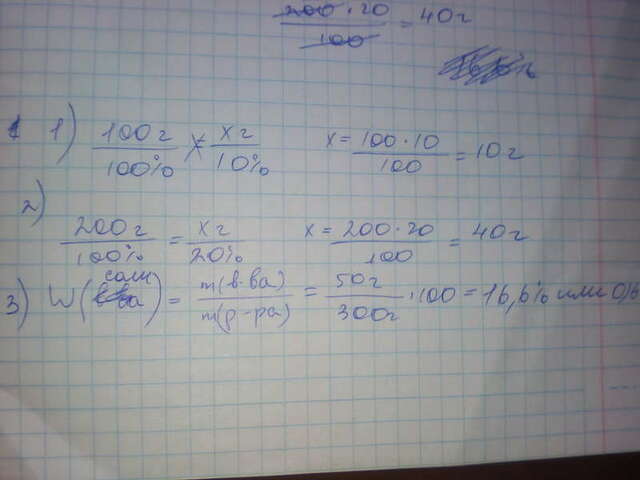 200·20/100 = 40г
1) 100г/100% = хг/10% x = 100·10/100 = 10г
2)
200г/100% = хг/20% x = 200·20/100 = 40г
3) W(соли) = m(в-ва)/m(р-ра) = 50г/300г ·100 = 16,6% или 0,16